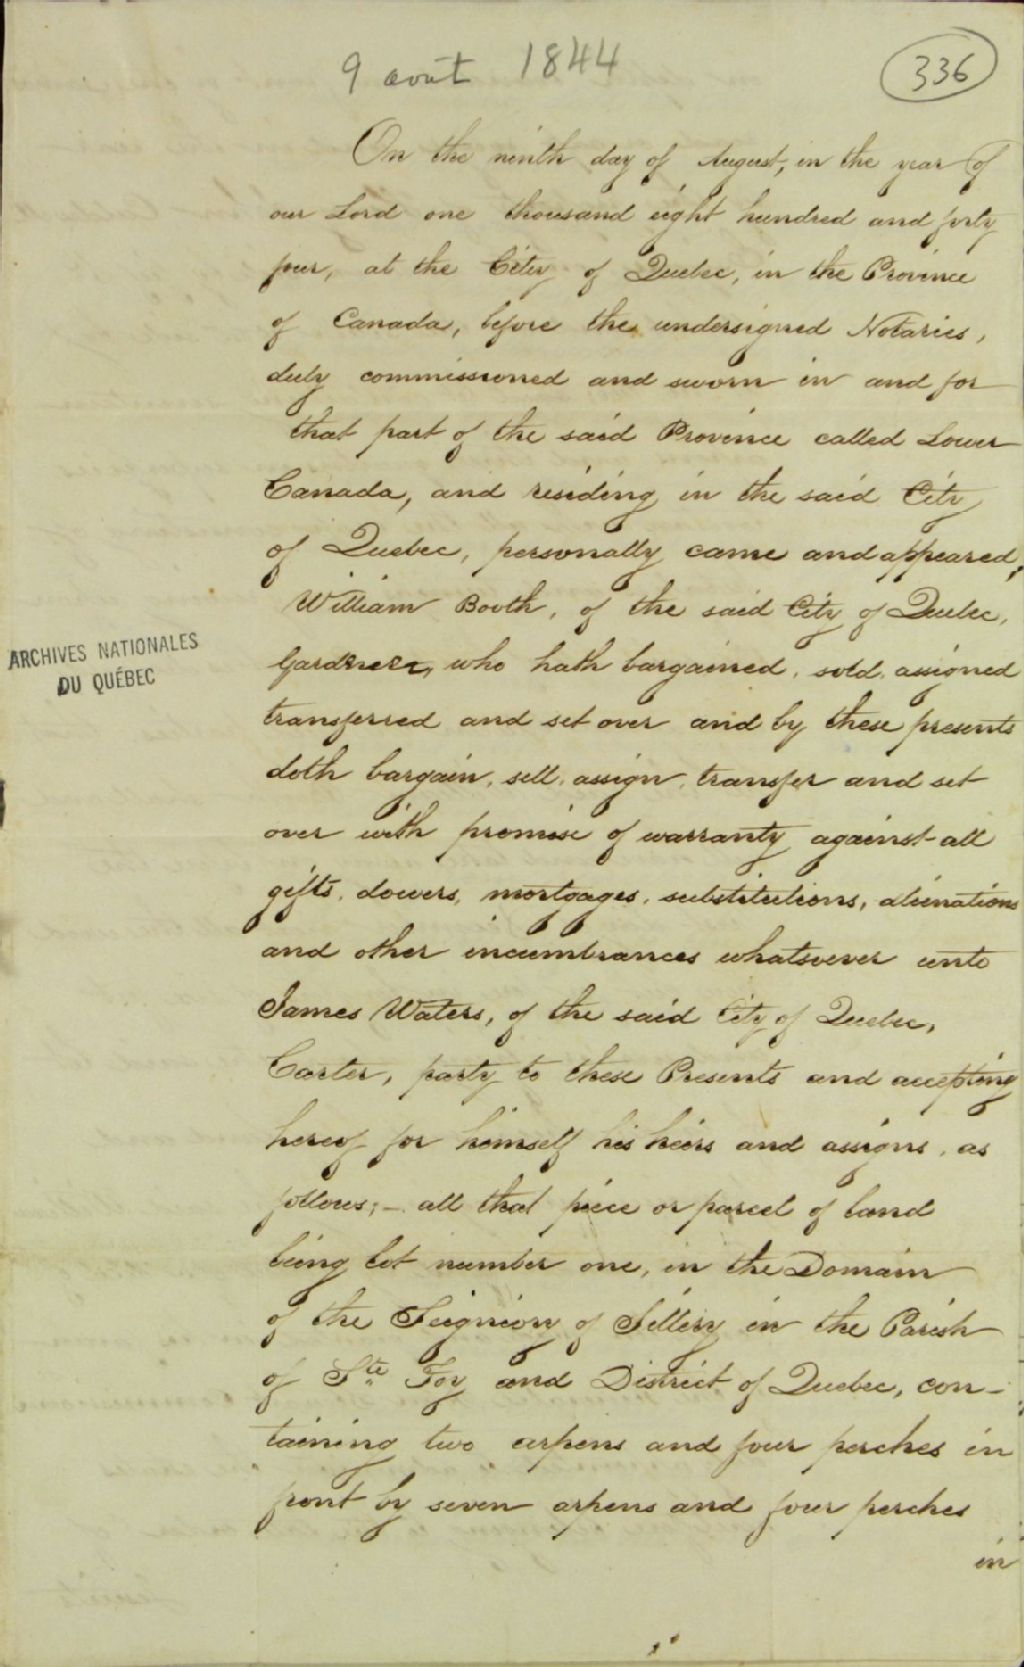 9 août 1844
336
On the ninth day of August, in the year of
our Lord one thousand eight hundred and forty
four, at the City of Quebec, in the Province
of Canada, before the undersigned Notaries,
duly commissioned and sworn in and for
that part of the said Province called Lower
Canada, and residing in the said City
of Quebec, personally came and appeared,
William Booth, of the said City of Quebec,
Gardner, who hath bargained, sold, assigned
transferred and set over and by these presents
doth bargain, sell, assign, transfer and set
over with promise of warranty against all
gifts, dowers, mortgages, substitutions, alienations
and other incumbrances whatsoever unto
James Waters, of the said City of Quebec,
Carter, party to these Presents and accepting
hereof for himself his heirs and assigns, as
follows;- all that piece or parcel of land
being lot number one, in the Domain
of the Seigniory of Sillery in the Parish
of Ste Foy and District of Quebec, con-
taining two arpens and four perches in
front by seven arpens and four perches
in
ARCHIVES NATIONALES
DU QUÉBEC